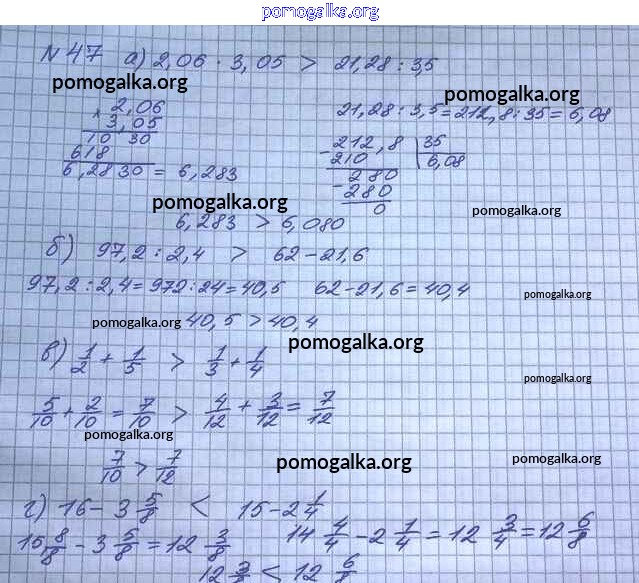 pomogalka.org
N 47 а) 2,06 · 3,05 > 21,28 : 3,5
pomogalka.org
× 2,06
3,05
10 30
618
6,2830 = 6,283
pomogalka.org
21,28 : 3,5 = 212,8 : 35 = 6,08
- 212,8 | 35
210 6,08
- 280
280
0
pomogalka.org
pomogalka.org
6,283 > 6,080
б) 97,2 : 2,4 > 62 - 21,6
97,2 : 2,4 = 972 : 24 = 40,5 62 - 21,6 = 40,4
pomogalka.org
pomogalka.org 40,5 > 40,4
pomogalka.org
в) 1/2 + 1/5 > 1/3 + 1/4
pomogalka.org
5/10 + 2/10 = 7/10 > 4/12 + 3/12 = 7/12
pomogalka.org
7/10 > 7/12
pomogalka.org
pomogalka.org
г) 16 - 3 5/8 < 15 - 2 1/4
15 8/8 - 3 5/8 = 12 3/8 14 4/4 - 2 1/4 = 12 3/4 = 12 6/8
pomogalka.org
12 3/8 < 12 6/8